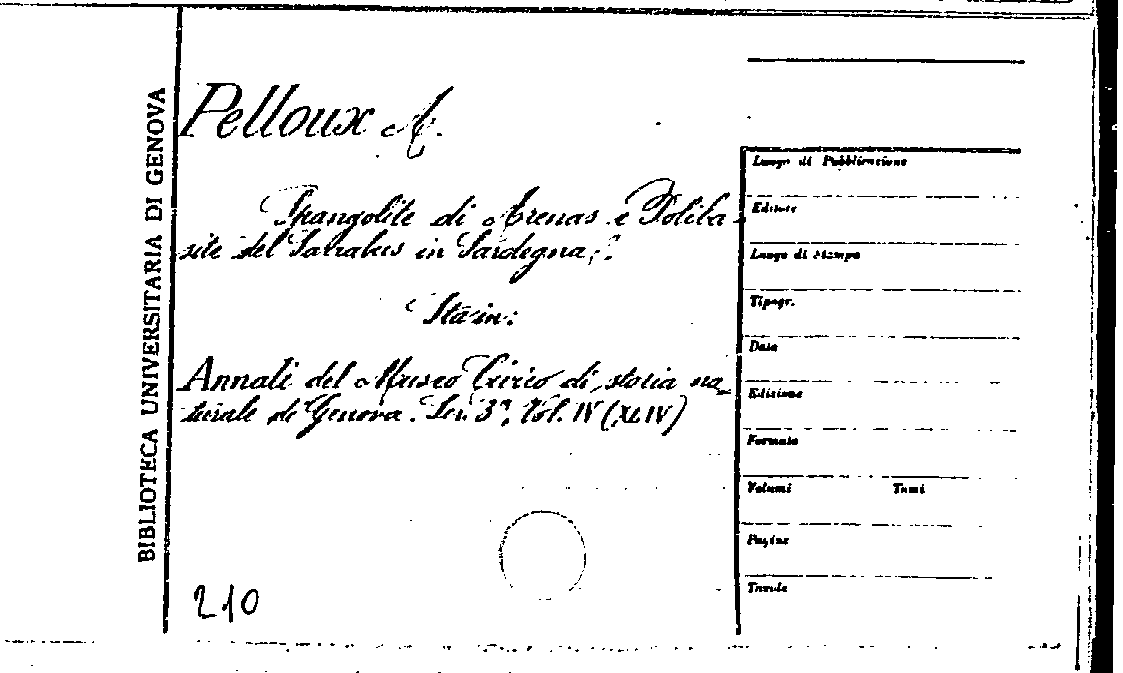 BIBLIOTECA UNIVERSITARIA DI GENOVA
Pelloux A.
Spangolite di Arenas e Poliba-
site del Sarrabus in Sardegna.
Sta in:
Annali del Museo Civico di storia na-
turale di Genova. Ser. 3ª, Vol. IV (XLIV)
210
Luogo di Pubblicazione
Editore
Luogo di stampa
Tipogr.
Data
Edizione
Formato
Volumi Tomi
Pagine
Tavole